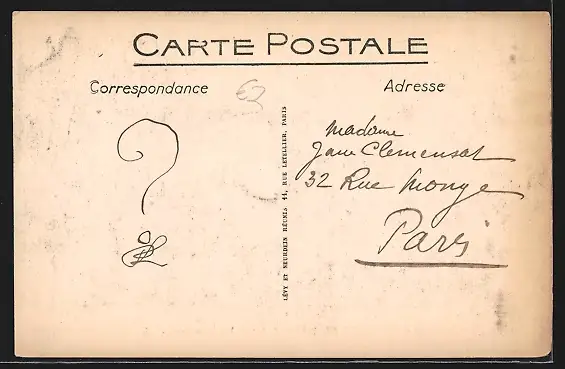 CARTE POSTALE
Correspondance
Adresse
?
LÉVY ET NEURDEIN RÉUNIS 44, RUE LETELLIER, PARIS
Madame
Jane Clemensat
32 Rue Monge
Paris